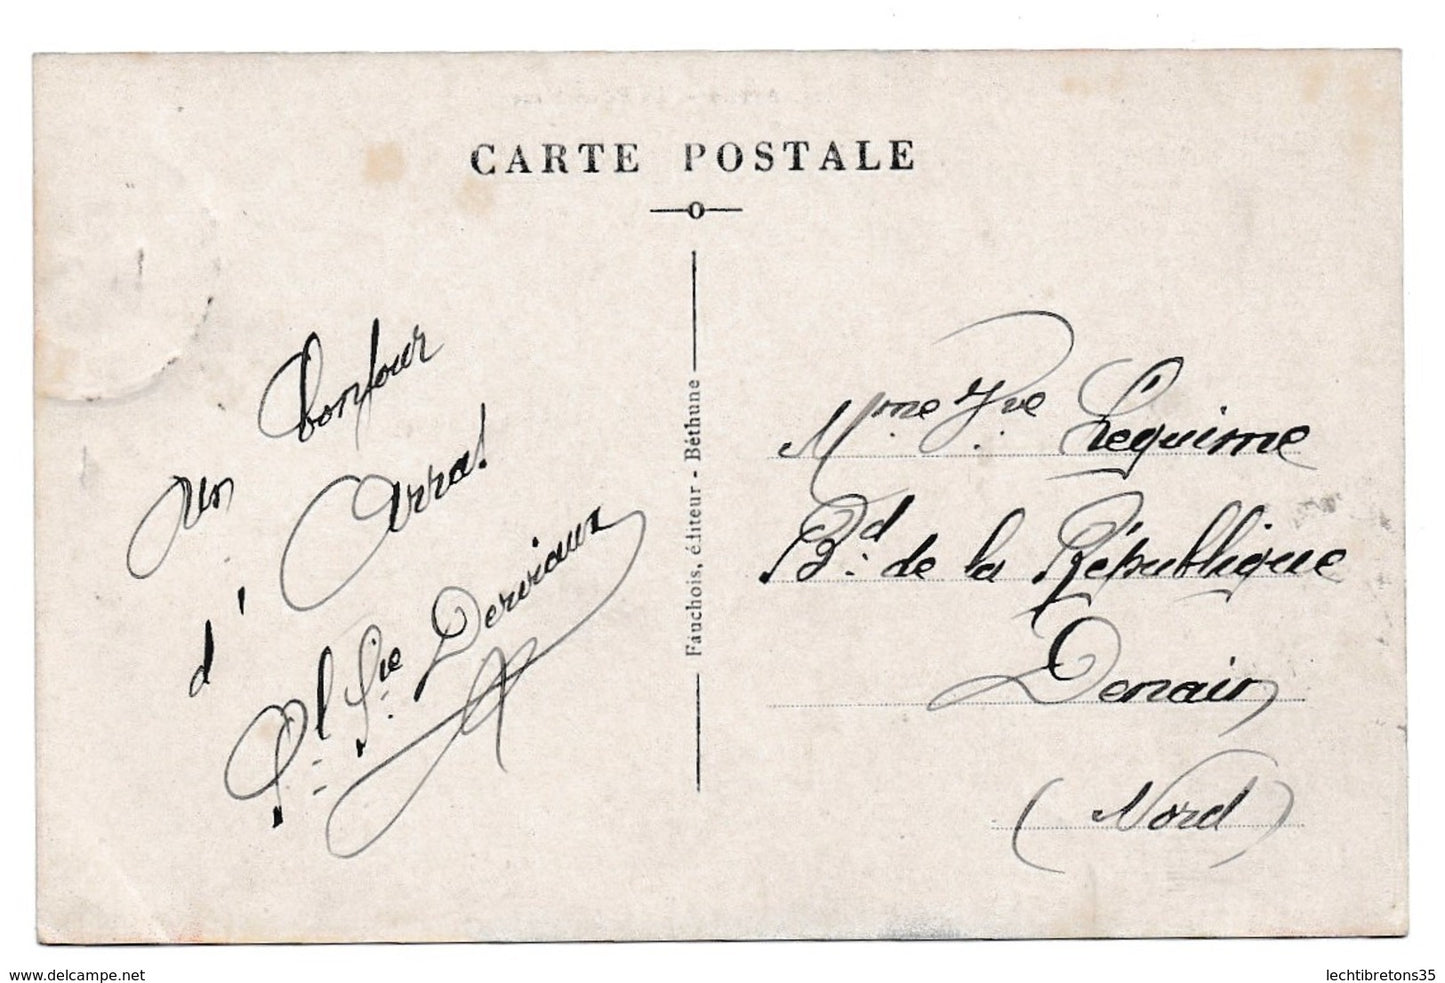 CARTE POSTALE
un bonjour
d'Arras
Pl. Ste Derviaux
Fauchois, éditeur - Béthune
Mme Vve Lequime
Bd. de la République
Denain
(Nord)
www.delcampe.net
lechtibretons35